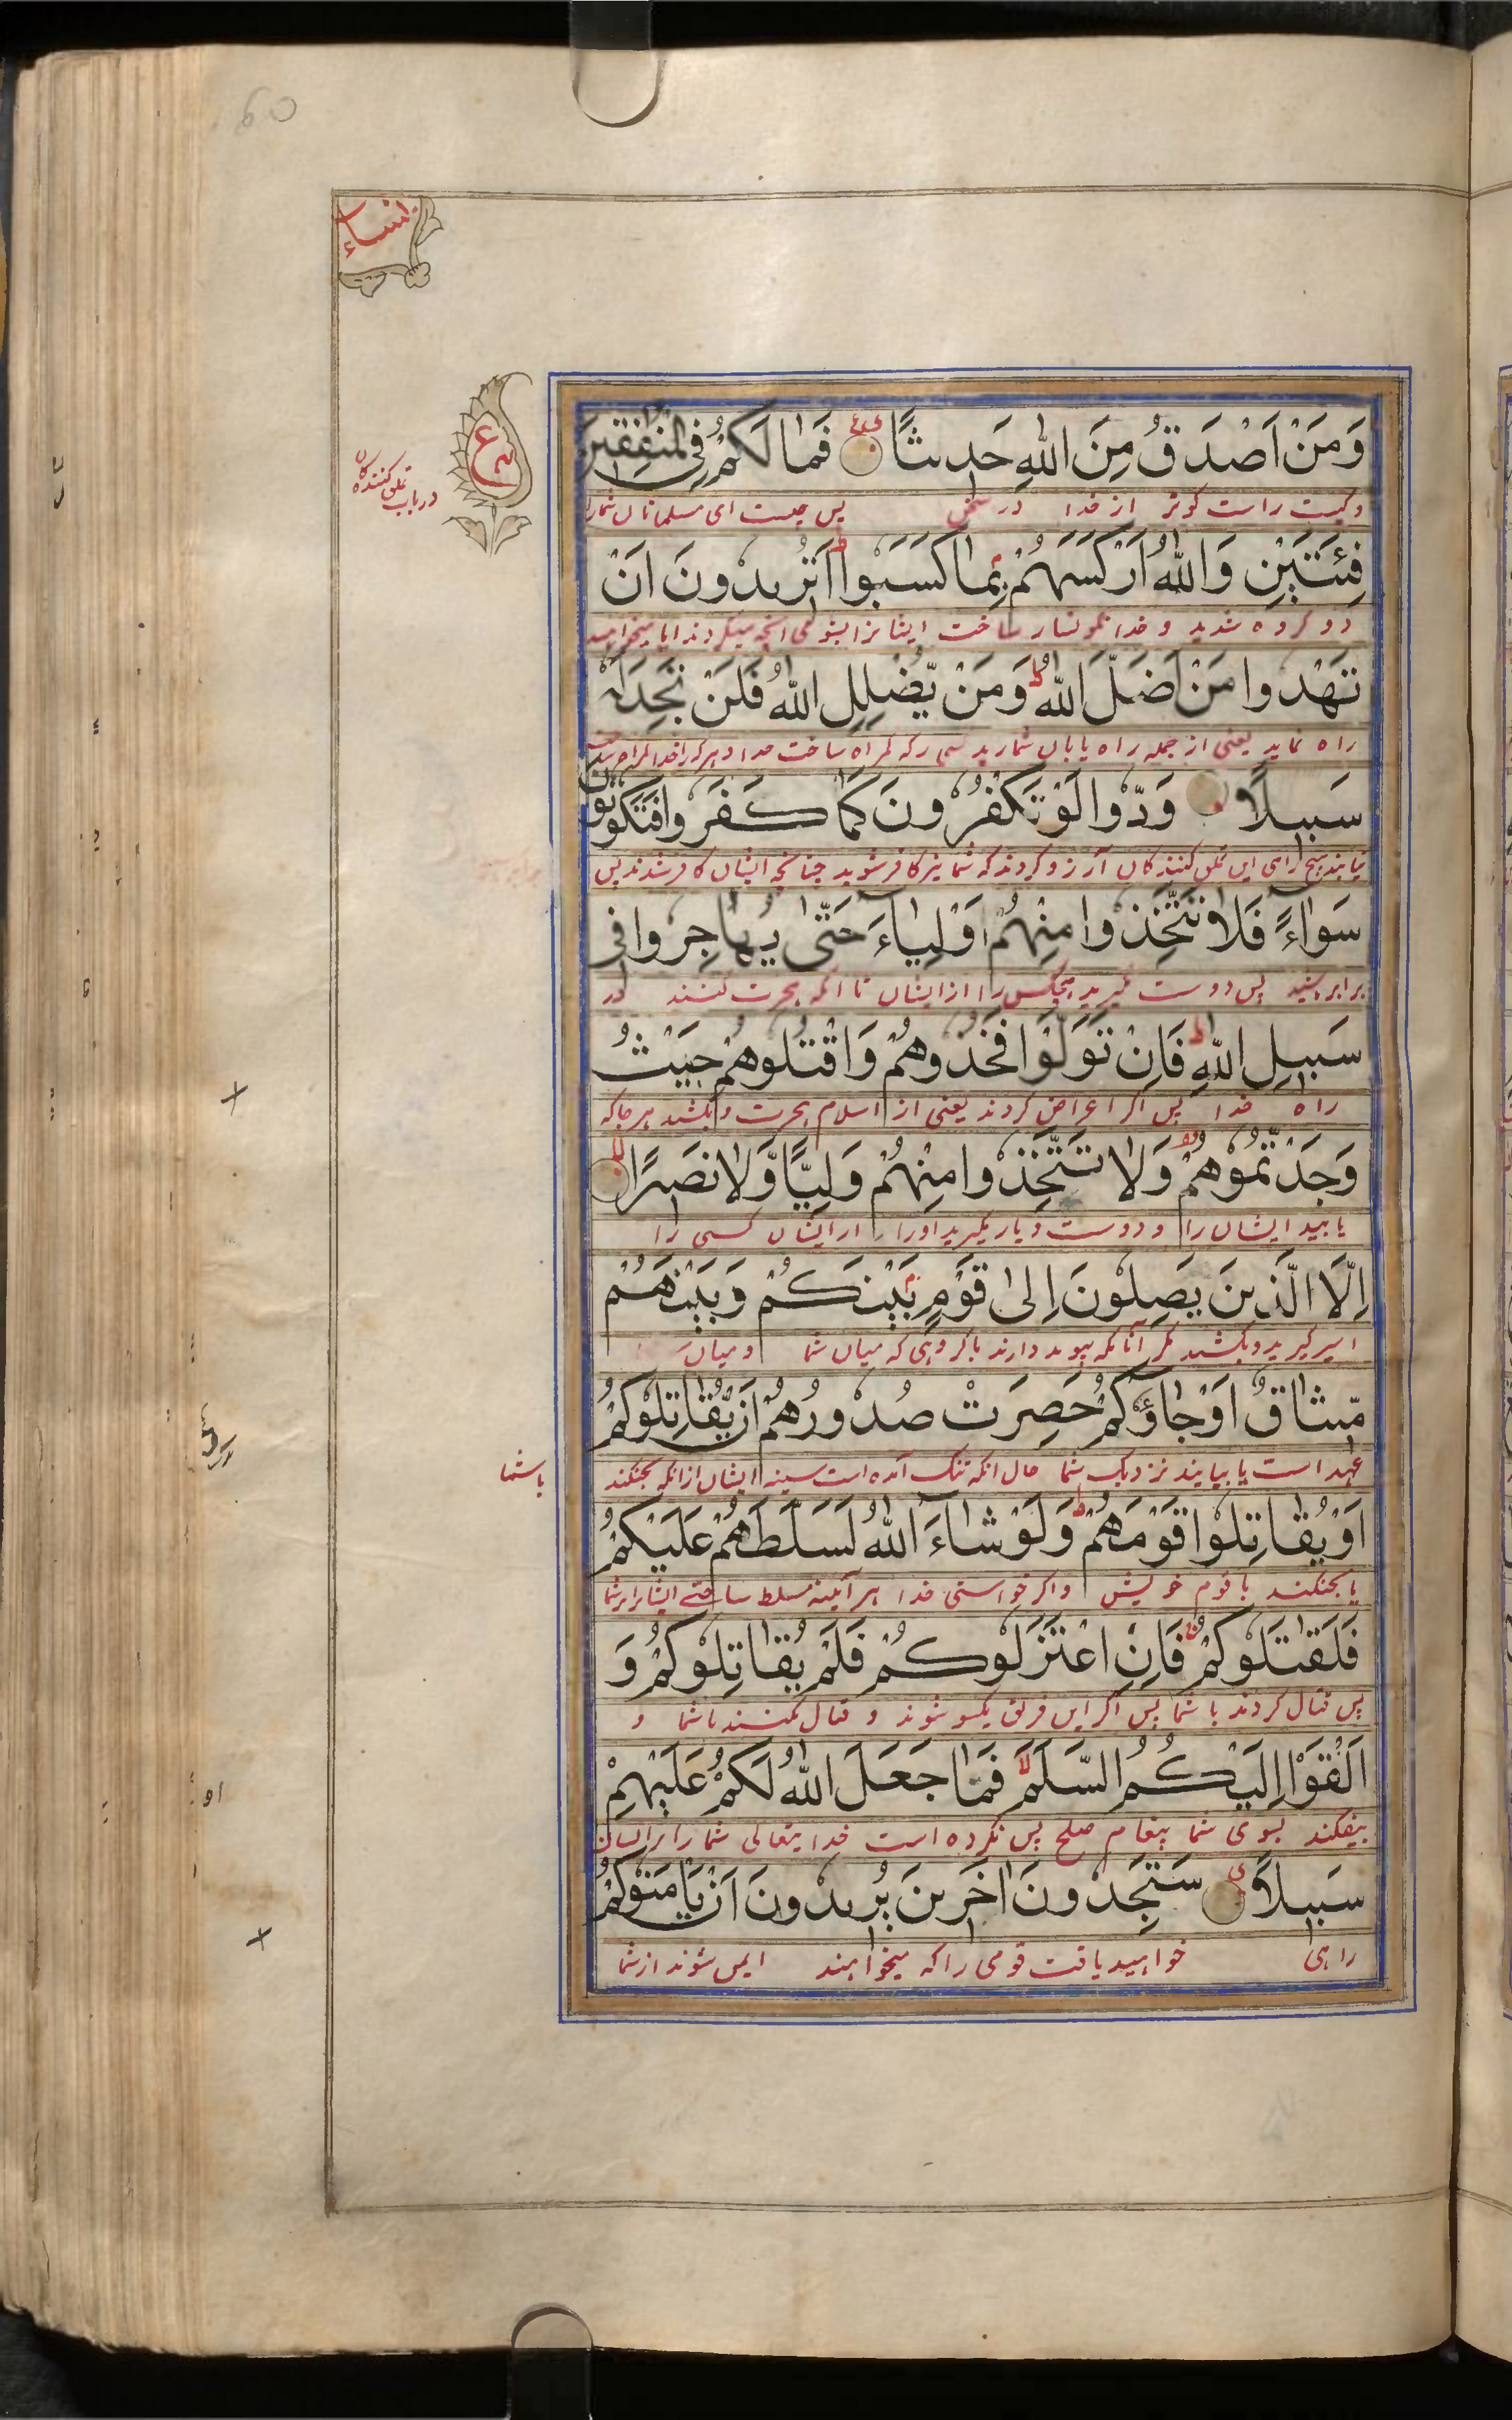 النساء
وَمَنْ اَصْدَقُ مِنَ اللّٰهِ حَدِیثًا فَمَا لَكُمْ فِی الْمُنٰفِقِینَ
وکیست راست کوتر از خدا در سخن پس چیست ای مسلمانان شمارا
در باب تملق کنندکان
فِئَتَیْنِ وَاللّٰهُ اَرْكَسَهُمْ بِمَا كَسَبُوا اَتُرِیدُونَ اَنْ
دو کروه شدید و خدا نکونسار ساخت ایشانرا بشومی انچه میکردند ایا میخواهید
تَهْدُوا مَنْ اَضَلَّ اللّٰهُ وَمَنْ یُّضْلِلِ اللّٰهُ فَلَنْ تَجِدَ لَهٗ
راه نماید یعنی از جمله راه یابان شمارید کسی را که کمراه ساخت خدا و هرکه را خدا کمراه ساخت
سَبِیلًا وَدُّوا لَوْ تَكْفُرُونَ كَمَا كَفَرُوا فَتَكُونُونَ
نیابند هیچ راهی این تملق کنندکان آرزو کردند که شما نیز کافر شوید چنانچه ایشان کافر شدند پس
سَوَاءً فَلَا تَتَّخِذُوا مِنْهُمْ اَوْلِیَاءَ حَتّٰی یُهَاجِرُوا فِی
برابر باشید پس دوست مکیرید هیچکس را از ایشان تا انکه هجرت کنند در
سَبِیلِ اللّٰهِ فَاِنْ تَوَلَّوْا فَخُذُوهُمْ وَاقْتُلُوهُمْ حَیْثُ
راه خدا پس اکر اعراض کردند یعنی از اسلام هجرت و بکشید هر جا که
وَجَدْتُّمُوهُمْ وَلَا تَتَّخِذُوا مِنْهُمْ وَلِیًّا وَّلَا نَصِیرًا
یابید ایشان را و دوست و یار مکیرید از ایشان کسی را
اِلَّا الَّذِینَ یَصِلُونَ اِلٰی قَوْمٍ بَیْنَكُمْ وَبَیْنَهُمْ
اسیر کیرید و بکشید مکر آنانکه پیوند دارند با کروهی که میان شما و میان
مِّیثَاقٌ اَوْ جَاؤُكُمْ حَصِرَتْ صُدُورُهُمْ اَنْ یُّقَاتِلُوكُمْ
عهد است یا بیایند نزدیک شما حال انکه تنک آمده است سینه ایشان از انکه بجنکند
با شما
اَوْ یُقَاتِلُوا قَوْمَهُمْ وَلَوْ شَاءَ اللّٰهُ لَسَلَّطَهُمْ عَلَیْكُمْ
یا بجنکند با قوم خویش و اکر خواستی خدا هر آیینه مسلط ساختی ایشانرا بر شما
فَلَقٰتَلُوكُمْ فَاِنِ اعْتَزَلُوكُمْ فَلَمْ یُقَاتِلُوكُمْ وَ
پس قتال کردند با شما پس اکر این فریق یکسو شوند و قتال نکنند با شما و
اَلْقَوْا اِلَیْكُمُ السَّلَمَ فَمَا جَعَلَ اللّٰهُ لَكُمْ عَلَیْهِمْ
بیفکند بسوی شما پیغام صلح پس نکرده است خدایتعالی شما را بر ایشان
سَبِیلًا سَتَجِدُونَ اٰخَرِینَ یُرِیدُونَ اَنْ یَّاْمَنُوكُمْ
راهی خواهید یافت قومی را که میخواهند ایمن شوند از شما